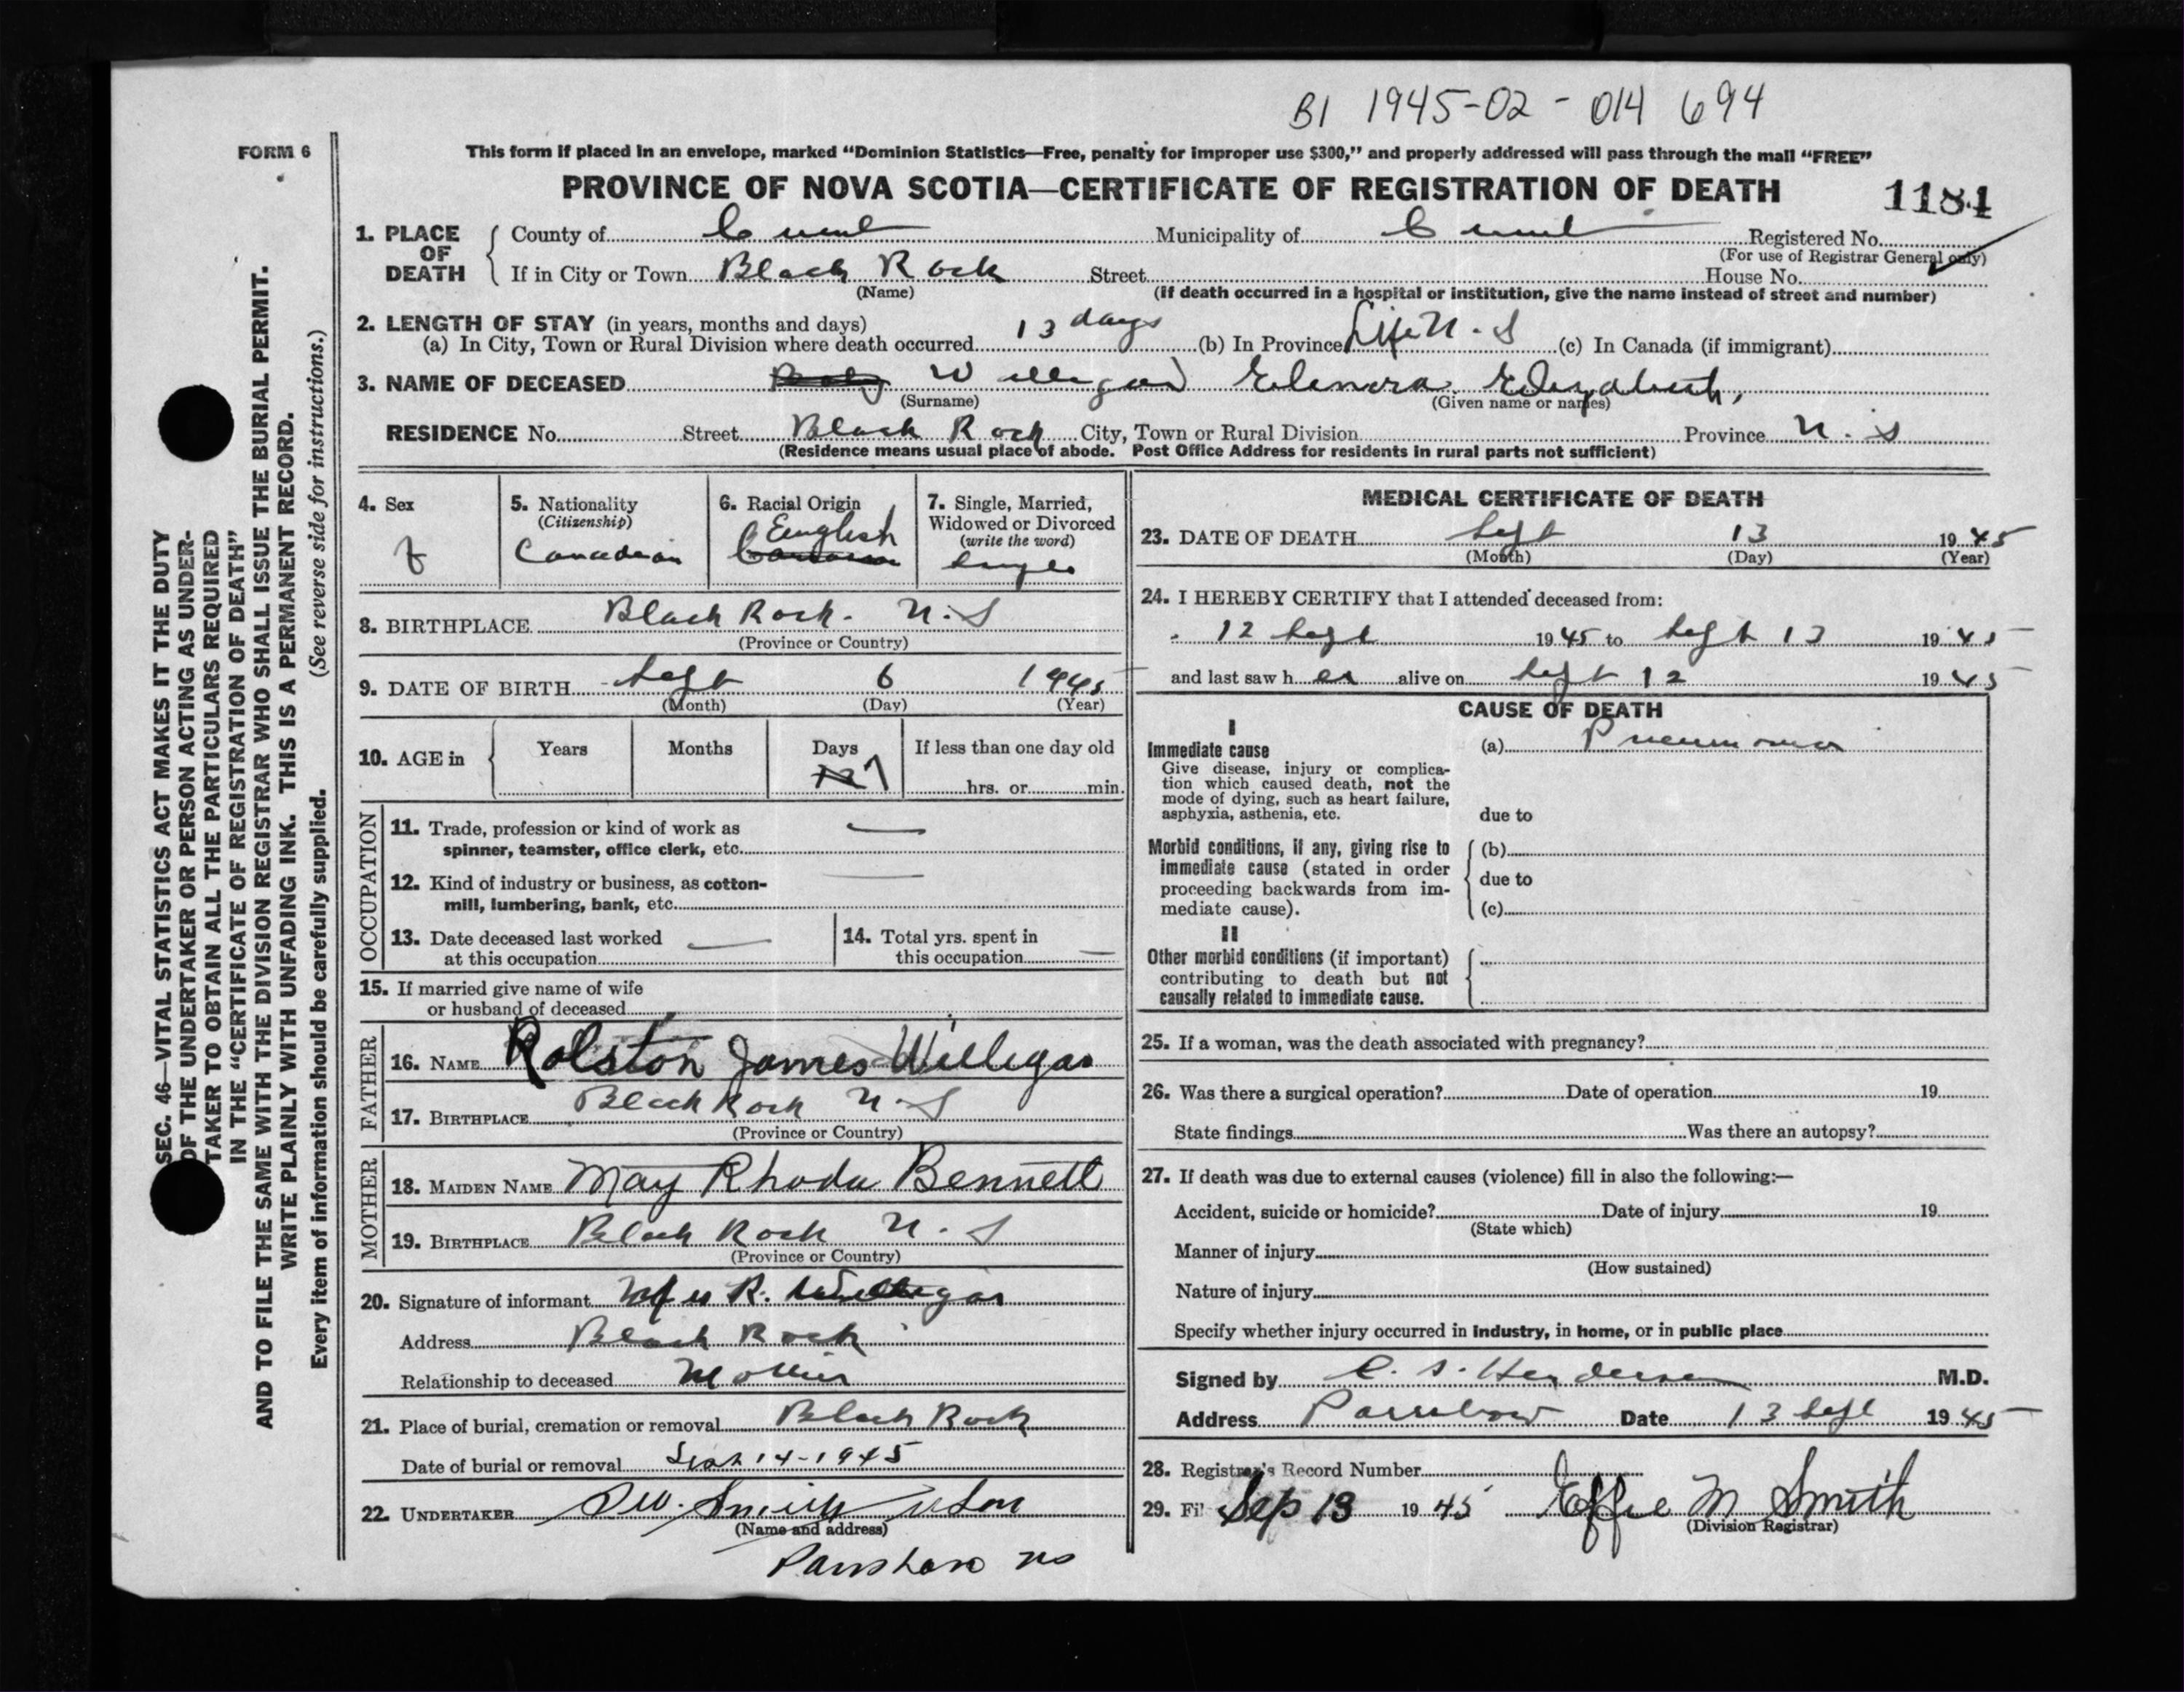 B1 1945-02-014 694
FORM 6
This form if placed in an envelope, marked “Dominion Statistics—Free, penalty for improper use $300,” and properly addressed will pass through the mail “FREE”
PROVINCE OF NOVA SCOTIA—CERTIFICATE OF REGISTRATION OF DEATH
1184
1. PLACE OF DEATH
County of Municipality of Registered No.
(For use of Registrar General only)
If in City or Town Black Rock Street House No.
(Name) (If death occurred in a hospital or institution, give the name instead of street and number)
2. LENGTH OF STAY (in years, months and days)
(a) In City, Town or Rural Division where death occurred 13 days (b) In Province Life N.S (c) In Canada (if immigrant)
3. NAME OF DECEASED Willigar Elenora Elizabeth,
(Surname) (Given name or names)
RESIDENCE No. Street Black Rock City, Town or Rural Division Province N.S
(Residence means usual place of abode. Post Office Address for residents in rural parts not sufficient)
4. Sex
f
5. Nationality
(Citizenship)
Canadian
6. Racial Origin
English
7. Single, Married,
Widowed or Divorced
(write the word)
single
8. BIRTHPLACE Black Rock. N.S
(Province or Country)
9. DATE OF BIRTH Sept 6 1945
(Month) (Day) (Year)
10. AGE in Years Months Days If less than one day old
7 hrs. or min.
OCCUPATION
11. Trade, profession or kind of work as
spinner, teamster, office clerk, etc. —
12. Kind of industry or business, as cotton-
mill, lumbering, bank, etc. —
13. Date deceased last worked
at this occupation —
14. Total yrs. spent in
this occupation —
15. If married give name of wife
or husband of deceased
FATHER
16. NAME Rolston James Willigar
17. BIRTHPLACE Black Rock N.S
(Province or Country)
MOTHER
18. MAIDEN NAME May Rhoda Bennett
19. BIRTHPLACE Black Rock N.S
(Province or Country)
20. Signature of informant Mrs R. Willigar
Address Black Rock
Relationship to deceased Mother
21. Place of burial, cremation or removal Black Rock
Date of burial or removal Sept 14-1945
22. UNDERTAKER Smith & Son
(Name and address)
Parrsboro NS
MEDICAL CERTIFICATE OF DEATH
23. DATE OF DEATH Sept 13 1945
(Month) (Day) (Year)
24. I HEREBY CERTIFY that I attended deceased from:
12 Sept 1945 to Sept 13 1945
and last saw her alive on Sept 12 1945
CAUSE OF DEATH
I
Immediate cause
Give disease, injury or complica-
tion which caused death, not the
mode of dying, such as heart failure,
asphyxia, asthenia, etc.
(a) Pneumonia
due to
Morbid conditions, if any, giving rise to
immediate cause (stated in order
proceeding backwards from im-
mediate cause).
(b)
due to
(c)
II
Other morbid conditions (if important)
contributing to death but not
causally related to immediate cause.
25. If a woman, was the death associated with pregnancy?
26. Was there a surgical operation? Date of operation 19
State findings Was there an autopsy?
27. If death was due to external causes (violence) fill in also the following:—
Accident, suicide or homicide? Date of injury 19
(State which)
Manner of injury
(How sustained)
Nature of injury
Specify whether injury occurred in industry, in home, or in public place
Signed by Henderson M.D.
Address Parrsboro Date 13 Sept 1945
28. Registrar's Record Number
29. Fil Sep 13 1945 Effie M Smith
(Division Registrar)
SEC. 46—VITAL STATISTICS ACT MAKES IT THE DUTY
OF THE UNDERTAKER OR PERSON ACTING AS UNDER-
TAKER TO OBTAIN ALL THE PARTICULARS REQUIRED
IN THE “CERTIFICATE OF REGISTRATION OF DEATH”
AND TO FILE THE SAME WITH THE DIVISION REGISTRAR WHO SHALL ISSUE THE BURIAL PERMIT.
WRITE PLAINLY WITH UNFADING INK. THIS IS A PERMANENT RECORD.
Every item of information should be carefully supplied. (See reverse side for instructions.)